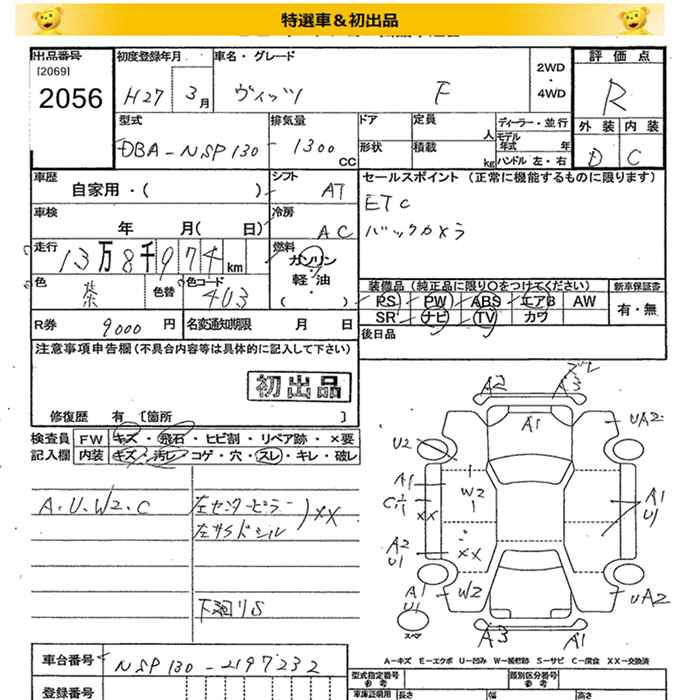 特選車＆初出品
出品番号 初度登録年月 車名・グレード 2WD・4WD 評価点
[2069]
2056 H27 3月 ヴィッツ F R
型式 排気量 ドア 定員 人 ディーラー・並行 外装 内装
DBA-NSP130- 1300 CC 形状 積載 kg モデル年式 年 ハンドル 左・右 D C
車歴 自家用・( ) シフト AT セールスポイント (正常に機能するものに限ります)
車検 年 月( 日) 冷房 AC ETC
バックカメラ
走行 13万8千974km 燃料 ガソリン 軽・油・( )
色 茶 色替 色コード 4U3 装備品 (純正品に限り○をつけてください) 新車保証書
PS PW ABS エアB AW 有・無
SR ナビ TV カワ
R券 9000円 名変通知期限 月 日 後日品
注意事項申告欄(不具合内容等は具体的に記入して下さい)
初出品
修復歴 有 [箇所 ]
検査員 FW キズ・飛石・ヒビ割・リペア跡・×要
記入欄 内装 キズ・汚レ・コゲ・穴・スレ・キレ・破レ
A.U.W2.C 左センターピラー XX
左サイドシル
下廻りS
A2 A3 ズレ
A1
UA2
U2
A1 W2
C XX A1
U1
A2
U1 XX
A1
U1 W2 UA2
スペア
A3 A1
A-キズ E-エクボ U-凹み W-補修跡 S-サビ C-腐食 XX-交換済
車台番号 NSP130-2197232
型式指定番号 参考 類別区分番号 参考
登録番号 車庫証明用 長さ 幅 高さ